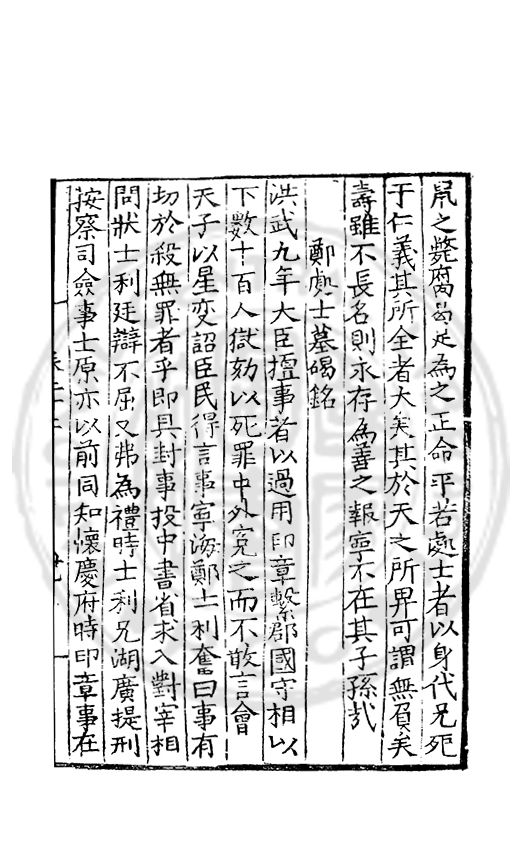 鼠之斃腐曷足為之正命乎若處士者以身代兄死
于仁義其所全者大矣其於天之所畀可謂無負矣
壽雖不長名則永存為善之報寧不在其子孫哉
鄭處士墓碣銘
洪武九年大臣擅事者以過用印章繫郡國守相以
下數十百人獄劾以死罪中外冤之而不敢言會
天子以星变詔臣民得言事寧海鄭士利奮曰事有
切於殺無罪者乎即具封事投中書省求入對宰相
問狀士利廷辯不屈又弗為禮時士利兄湖廣提刑
按察司僉事士原亦以前同知懷慶府時印章事在